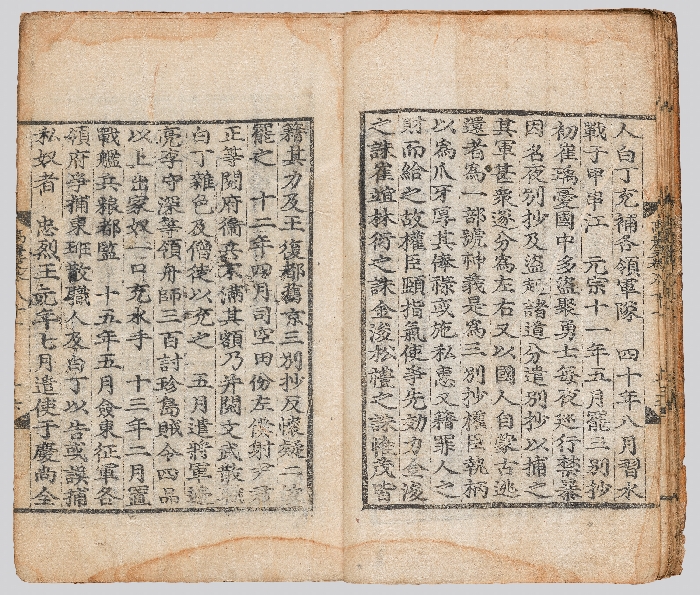 人白丁充補各領軍隊 四十年八月習水
戰于甲串江 元宗十一年五月罷三別抄
初崔瑀憂國中多盜聚勇士每夜巡行禁暴
因名夜別抄及盜起諸道分遣別抄以捕之
其軍甚衆遂分爲左右又以國人自蒙古逃
還者爲一部號神義是爲三別抄權臣執柄
以爲爪牙厚其俸祿或施私惠又籍罪人之
財而給之故權臣頤指氣使爭先效力金浚
之誅崔竩林衍之誅金浚松禮之誅惟茂皆
籍其力及王復都舊京三別抄反懷疑二故
罷之 十二年四月司空田份左僕射尹君
正等閱府衛兵不滿其額乃幷閱文武散
白丁雜色及僧徒以充之 五月遣將軍
亮李守深等領舟師三百討珍島賊令四品
以上出家奴一口充水手 十三年二月置
戰艦兵粮都監 十五年五月僉東征軍各
領府爭補東班散職人及白丁以告或誤捕
私奴者 忠烈王元年七月遣使于慶尙全